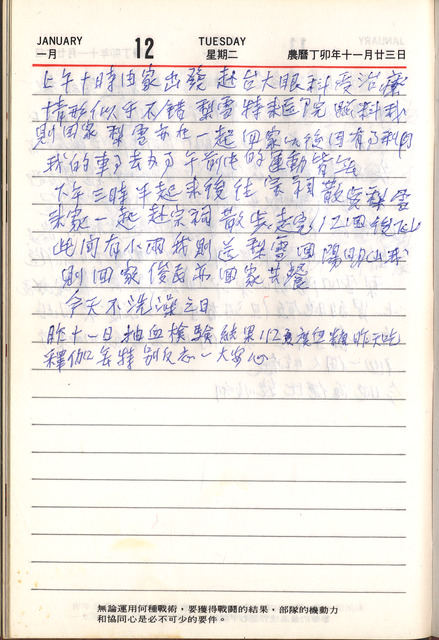 JANUARY 12 TUESDAY
一月 星期二 農曆丁卯年十一月廿三日
上午十時由家出發赴台大眼科受治療
情形似乎不錯 梨雪特來醫院照料我
則回家 梨雪亦在一起回家以後因有了
我的車子去為了午前的運動皆無
下午三時半起來後往宗祠散步 梨雪
來家一起赴宗祠散步走完12回後
此間有小雨我則送梨雪回陽明山我
則回家俊民亦回家共餐
今天不洗澡之日
昨十一日抽血檢驗結果112度血糖昨天吃
釋伽無特別反應一大安心
無論運用何種戰術，要獲得戰鬪的結果，部隊的機動力
和協同心是必不可少的要件。